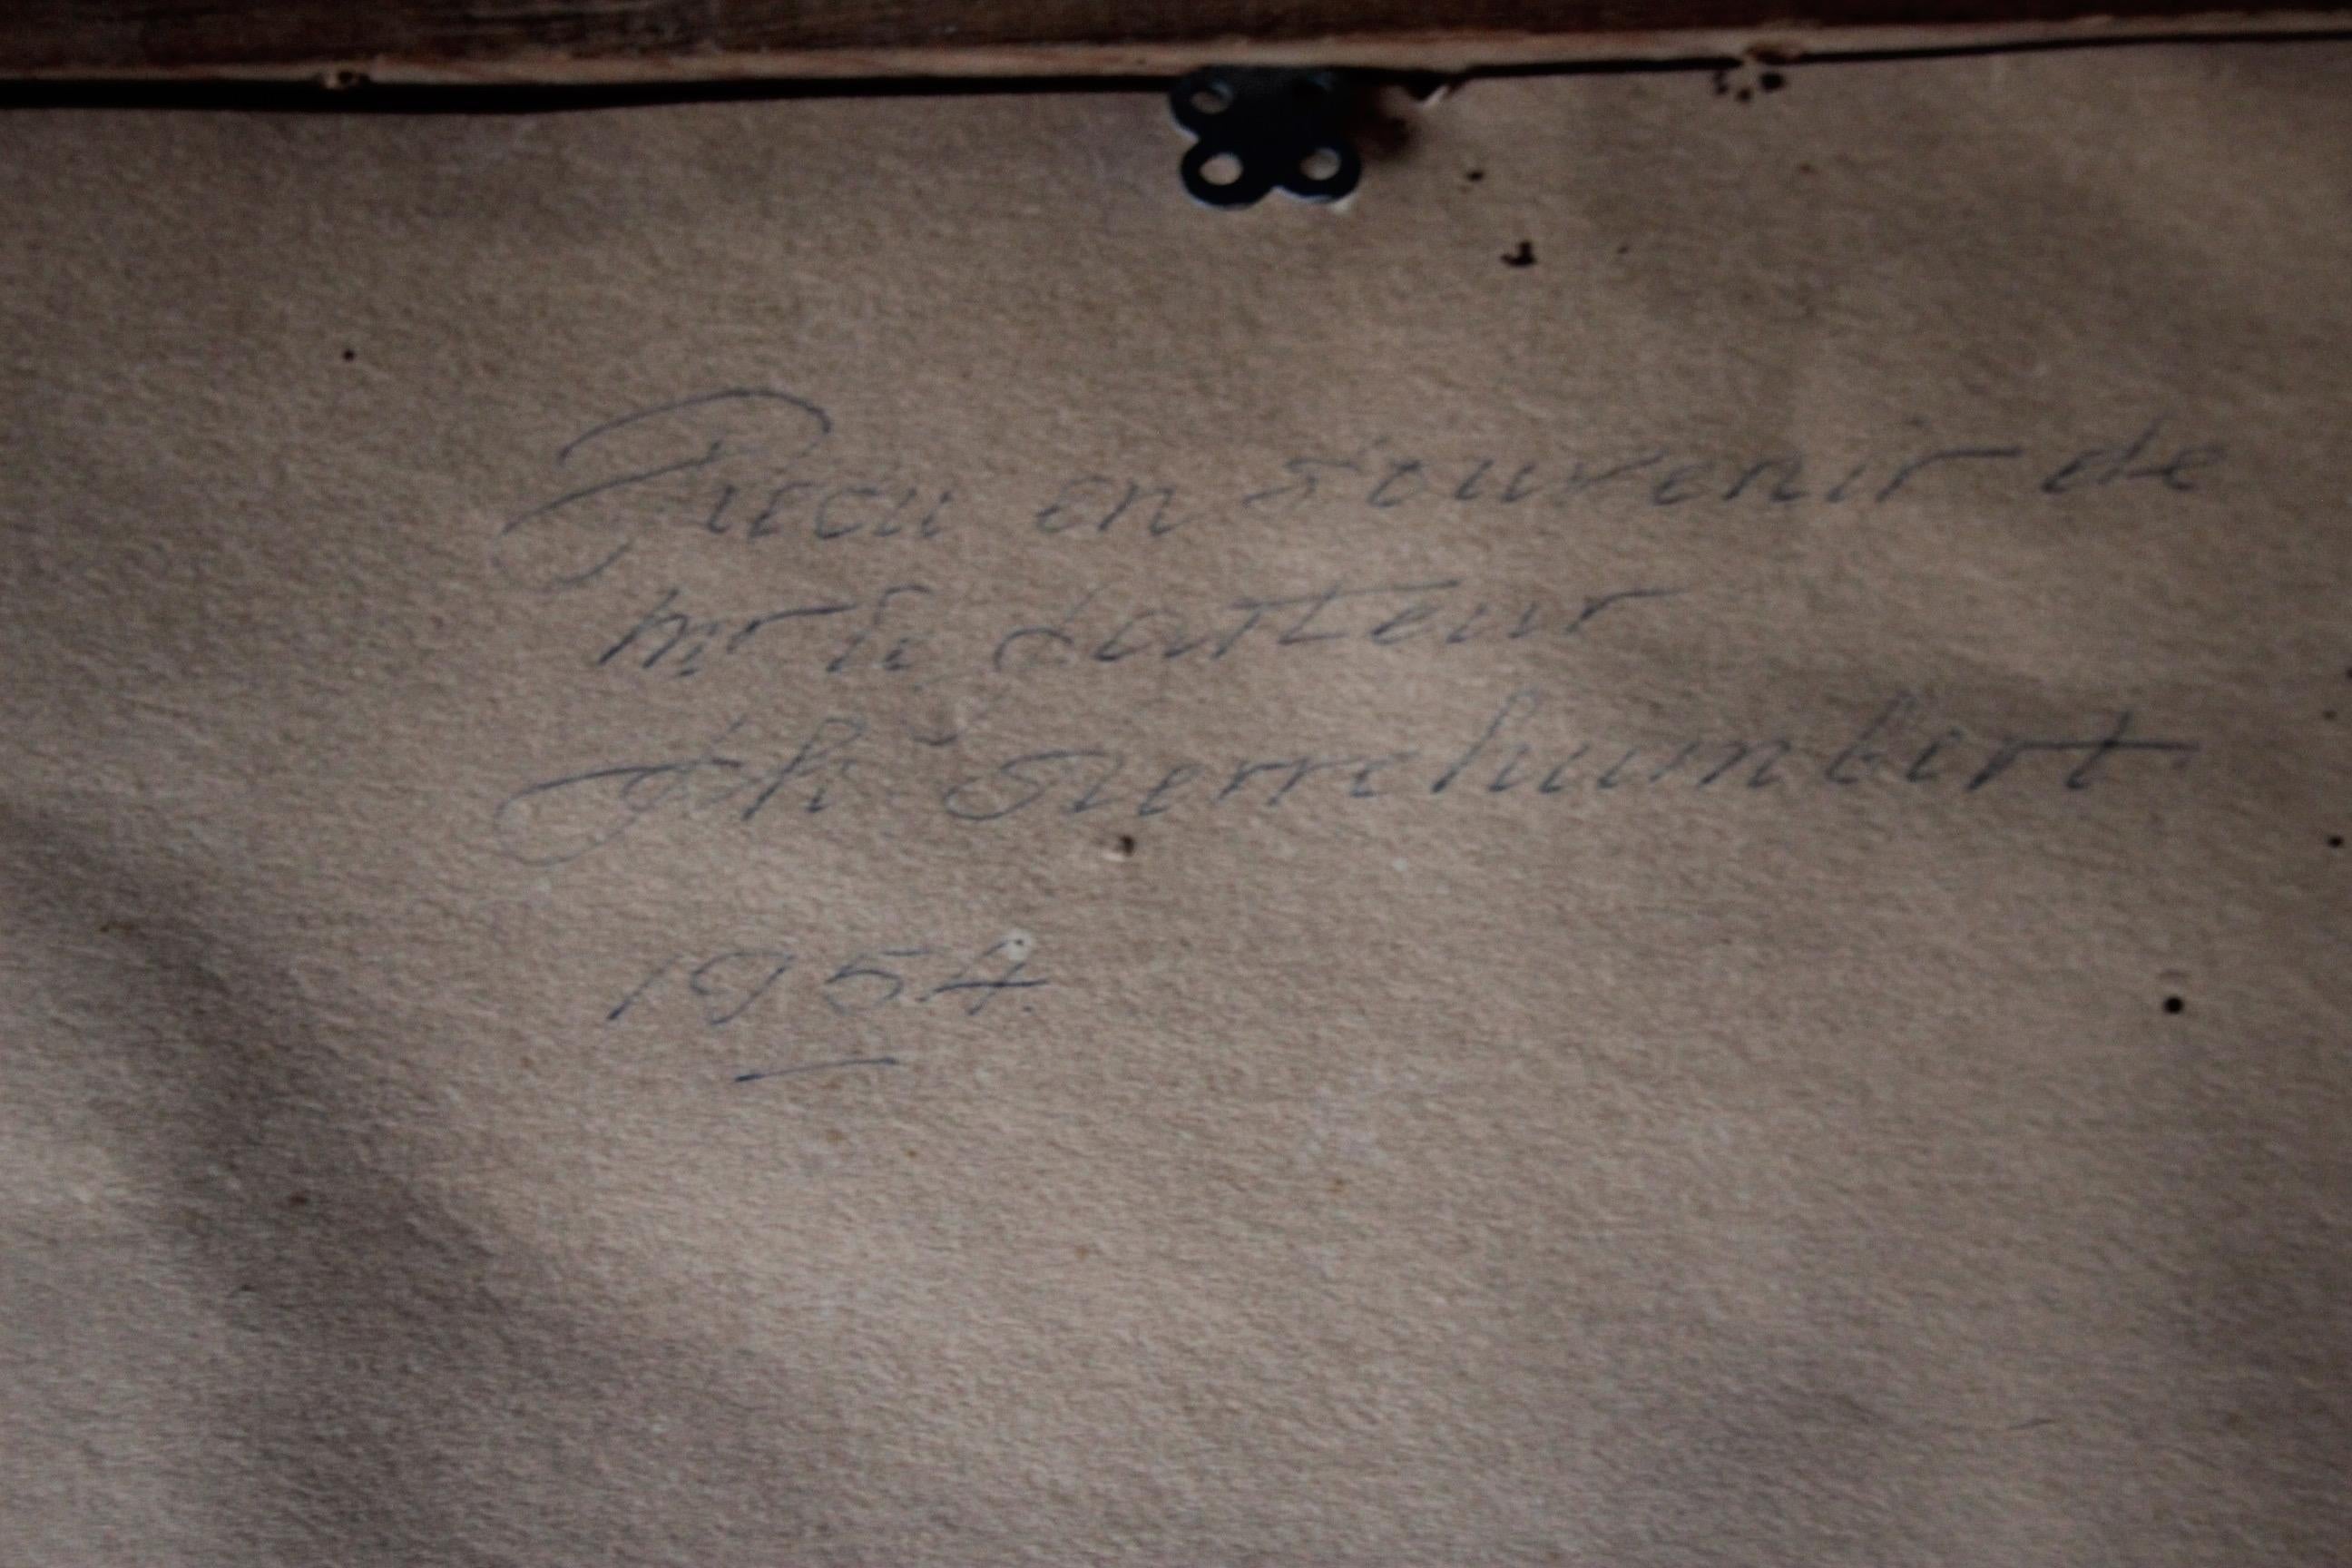 Reçu en souvenir de
mr le docteur
Pierrehumbert
1954.